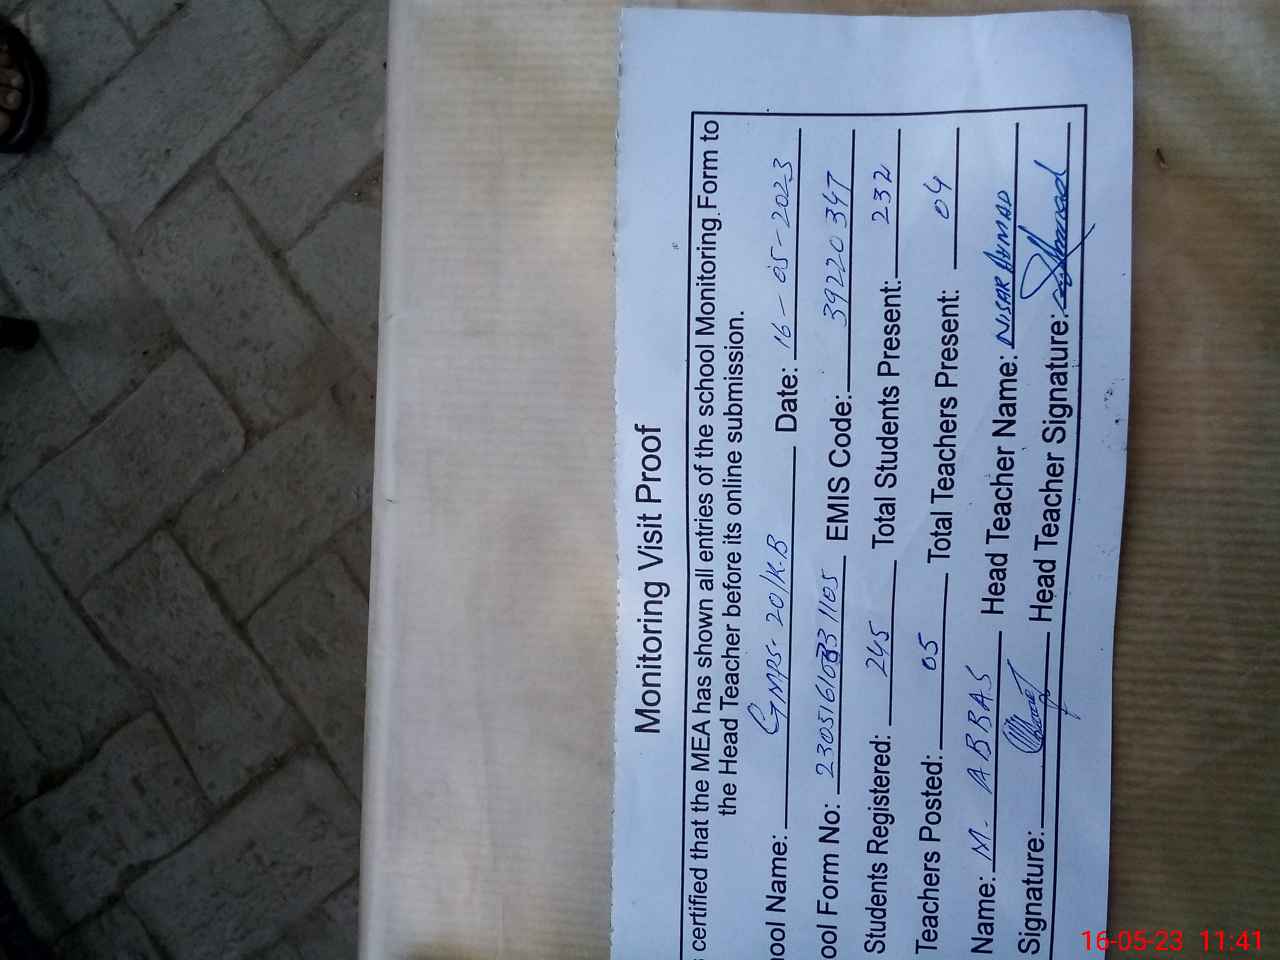 Monitoring Visit Proof
certified that the MEA has shown all entries of the school Monitoring Form to
the Head Teacher before its online submission.
ool Name: GMPS- 20/K.B Date: 16-05-2023
ool Form No: EMIS Code: 39220347
Students Registered: 245 Total Students Present: 232
Teachers Posted: 05 Total Teachers Present: 04
Name: M. ABBAS Head Teacher Name: NISAR AHMAD
Signature: Head Teacher Signature:
16-05-23 11:41